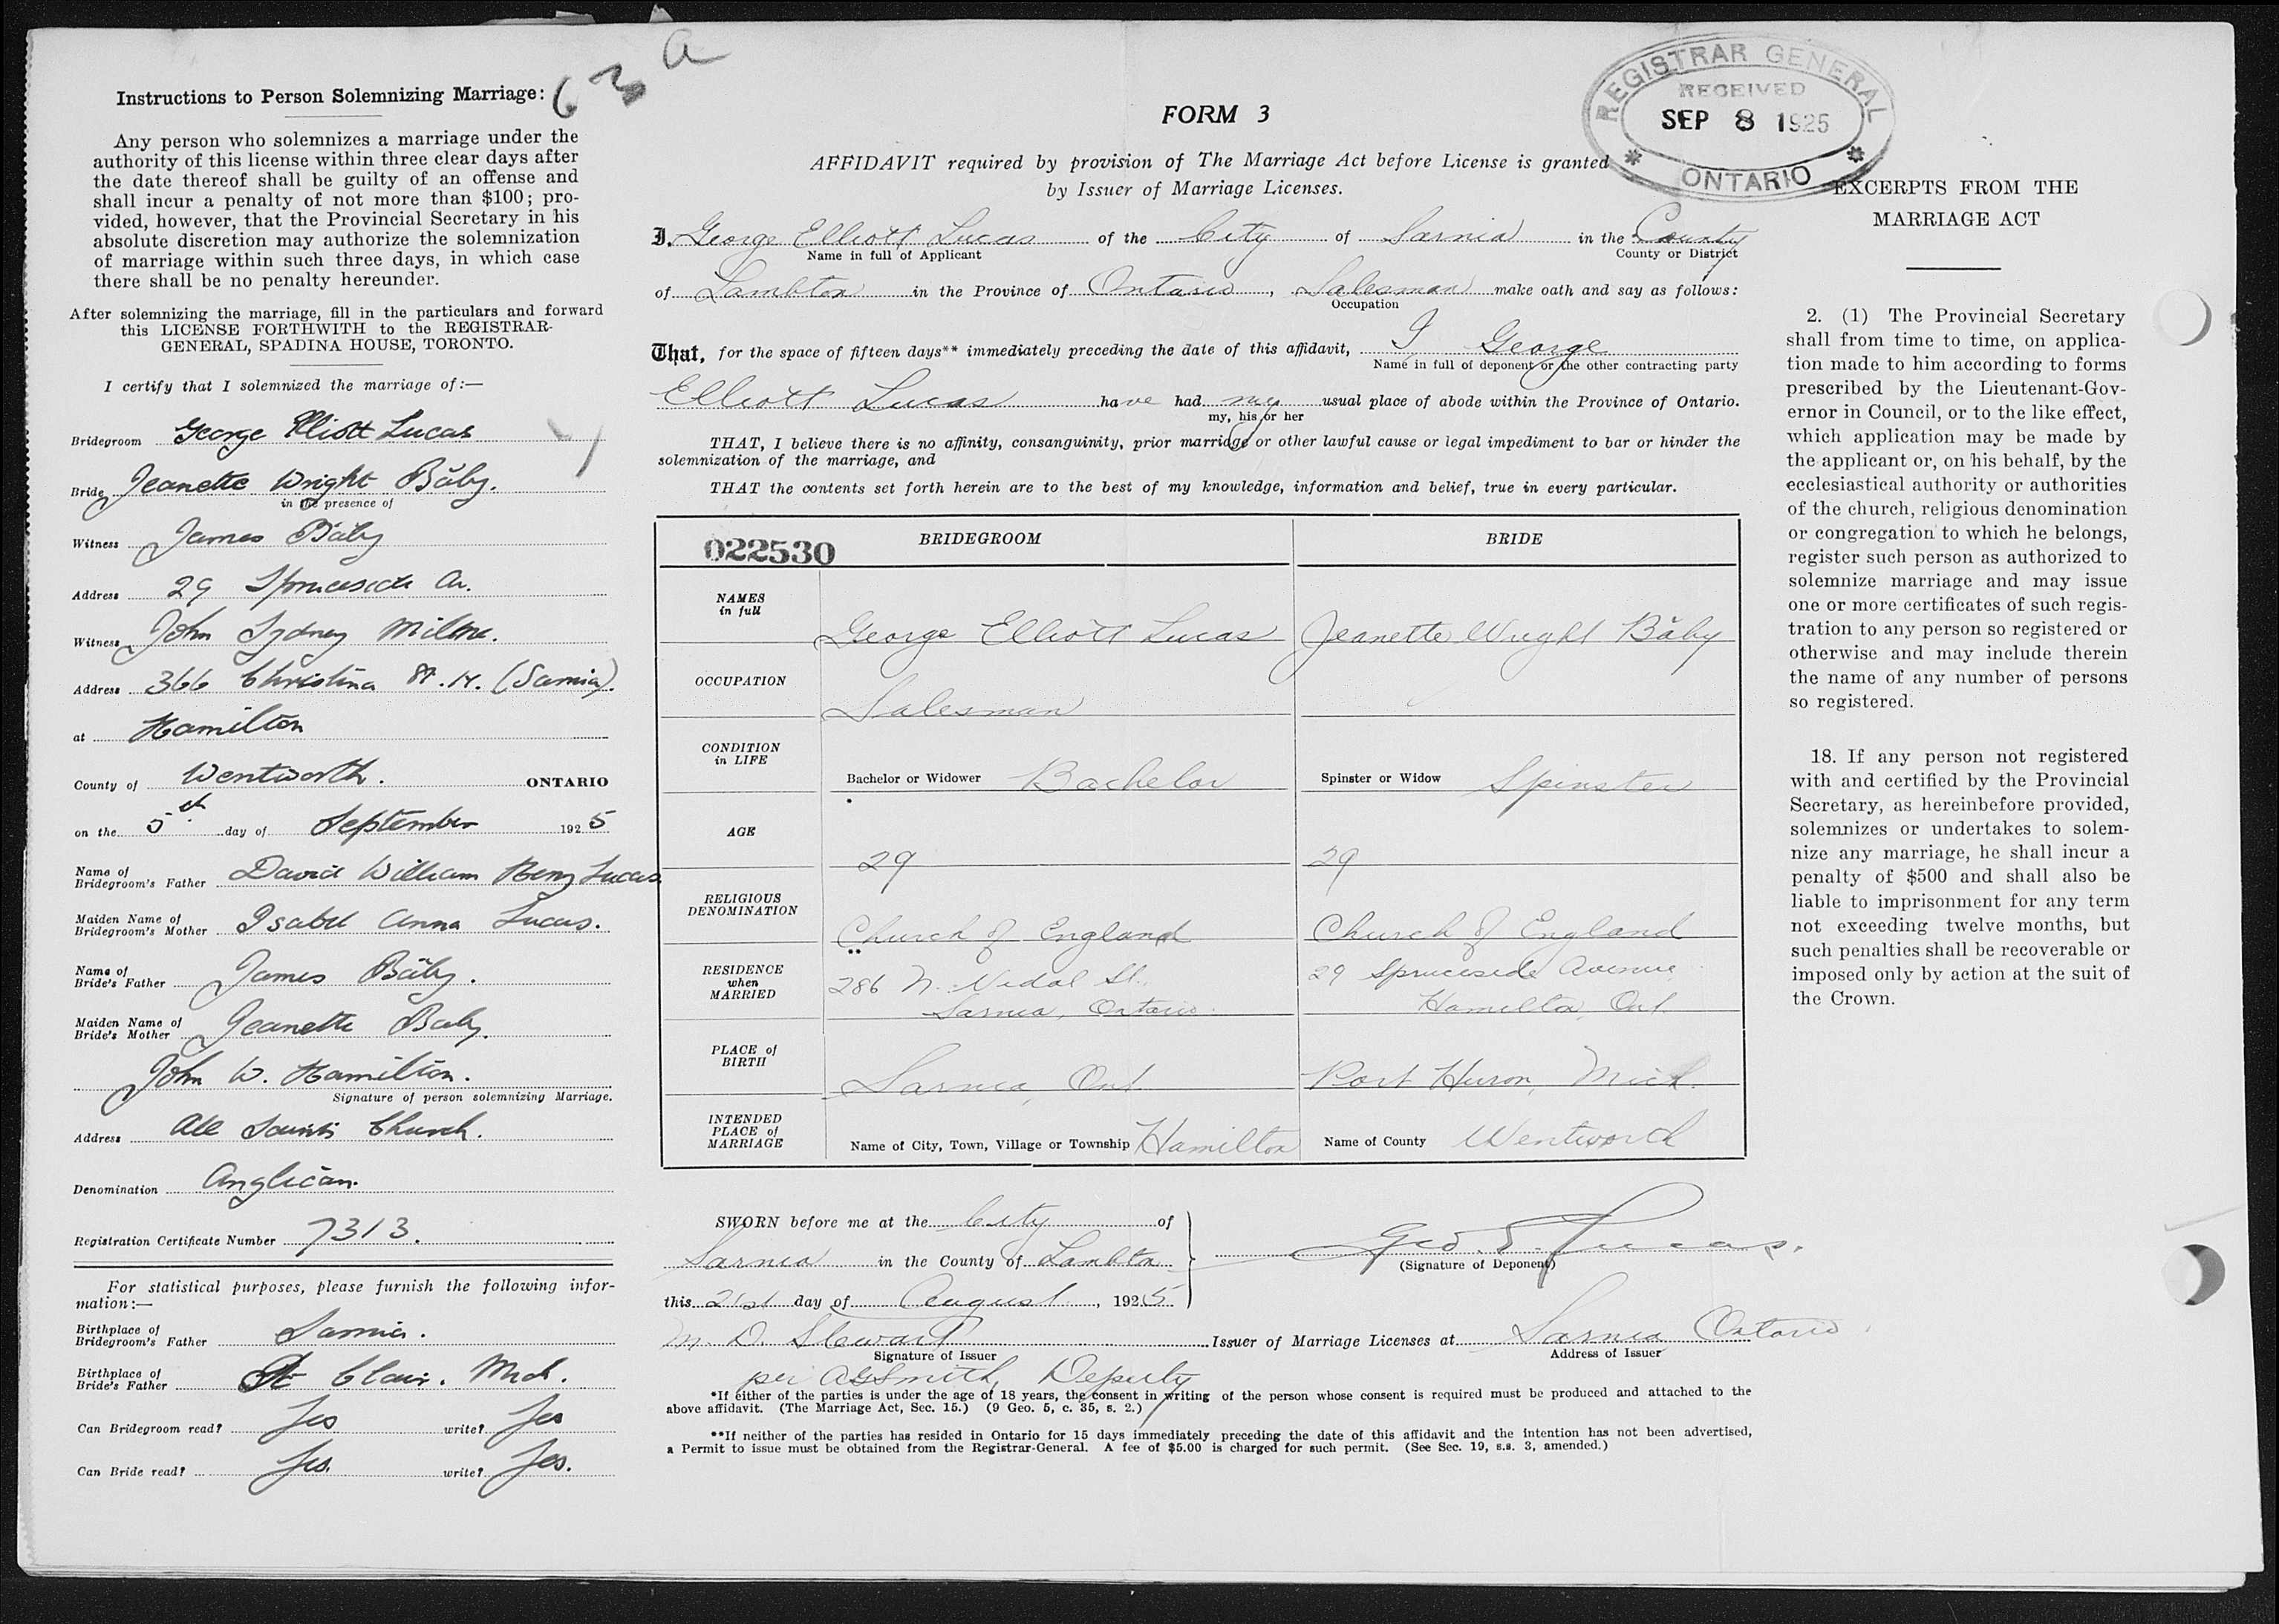 63 a
Instructions to Person Solemnizing Marriage:
Any person who solemnizes a marriage under the
authority of this license within three clear days after
the date thereof shall be guilty of an offense and
shall incur a penalty of not more than $100; pro-
vided, however, that the Provincial Secretary in his
absolute discretion may authorize the solemnization
of marriage within such three days, in which case
there shall be no penalty hereunder.
After solemnizing the marriage, fill in the particulars and forward
this LICENSE FORTHWITH to the REGISTRAR-
GENERAL, SPADINA HOUSE, TORONTO.
I certify that I solemnized the marriage of:—
Bridegroom George Elliott Lucas
Bride Jeanette Wright Bâby.
in the presence of
Witness James Bâby
Address 29 Spruceside Av.
Witness John Sydney Milne.
Address 366 Christina St. N. (Sarnia).
at Hamilton
County of Wentworth. ONTARIO
on the 5th day of September 1925
Name of
Bridegroom's Father David William Henry Lucas
Maiden Name of
Bridegroom's Mother Isabel Anna Lucas.
Name of
Bride's Father James Bâby.
Maiden Name of
Bride's Mother Jeanette Baby.
John W. Hamilton.
Signature of person solemnizing Marriage.
Address All Saints Church.
Denomination Anglican.
Registration Certificate Number 7313.
For statistical purposes, please furnish the following infor-
mation:—
Birthplace of
Bridegroom's Father Sarnia.
Birthplace of
Bride's Father St Clair. Mich.
Can Bridegroom read? Yes write? Yes
Can Bride read? Yes. write? Yes.
FORM 3
REGISTRAR GENERAL
RECEIVED
SEP 8 1925
ONTARIO
AFFIDAVIT required by provision of The Marriage Act before License is granted
by Issuer of Marriage Licenses.
I, George Elliott Lucas of the City of Sarnia in the County
Name in full of Applicant County or District
of Lambton in the Province of Ontario, Salesman make oath and say as follows:
Occupation
That, for the space of fifteen days** immediately preceding the date of this affidavit, I George
Name in full of deponent or the other contracting party
Elliott Lucas have had my usual place of abode within the Province of Ontario.
my, his or her
THAT, I believe there is no affinity, consanguinity, prior marriage or other lawful cause or legal impediment to bar or hinder the
solemnization of the marriage, and
THAT the contents set forth herein are to the best of my knowledge, information and belief, true in every particular.
022530 BRIDEGROOM BRIDE
NAMES
in full
George Elliott Lucas Jeanette Wright Bâby
OCCUPATION
Salesman
CONDITION
in LIFE
Bachelor or Widower Bachelor Spinster or Widow Spinster
AGE
29 29
RELIGIOUS
DENOMINATION
Church of England Church of England
RESIDENCE
when
MARRIED
286 N. Vidal St. 29 Spruceside Avenue
Sarnia, Ontario. Hamilton, Ont.
PLACE of
BIRTH
Sarnia, Ont Port Huron, Mich.
INTENDED
PLACE of
MARRIAGE
Name of City, Town, Village or Township Hamilton Name of County Wentworth
SWORN before me at the City of
Sarnia in the County of Lambton
this 21st day of August, 1925
Geo. E. Lucas.
(Signature of Deponent)
M. D. Stewart Issuer of Marriage Licenses at Sarnia Ontario
Signature of Issuer Address of Issuer
per AGSmith, Deputy
*If either of the parties is under the age of 18 years, the consent in writing of the person whose consent is required must be produced and attached to the
above affidavit. (The Marriage Act, Sec. 15.) (9 Geo. 5, c. 35, s. 2.)
**If neither of the parties has resided in Ontario for 15 days immediately preceding the date of this affidavit and the intention has not been advertised,
a Permit to issue must be obtained from the Registrar-General. A fee of $5.00 is charged for such permit. (See Sec. 19, s.s. 3, amended.)
EXCERPTS FROM THE
MARRIAGE ACT
2. (1) The Provincial Secretary
shall from time to time, on applica-
tion made to him according to forms
prescribed by the Lieutenant-Gov-
ernor in Council, or to the like effect,
which application may be made by
the applicant or, on his behalf, by the
ecclesiastical authority or authorities
of the church, religious denomination
or congregation to which he belongs,
register such person as authorized to
solemnize marriage and may issue
one or more certificates of such regis-
tration to any person so registered or
otherwise and may include therein
the name of any number of persons
so registered.
18. If any person not registered
with and certified by the Provincial
Secretary, as hereinbefore provided,
solemnizes or undertakes to solem-
nize any marriage, he shall incur a
penalty of $500 and shall also be
liable to imprisonment for any term
not exceeding twelve months, but
such penalties shall be recoverable or
imposed only by action at the suit of
the Crown.